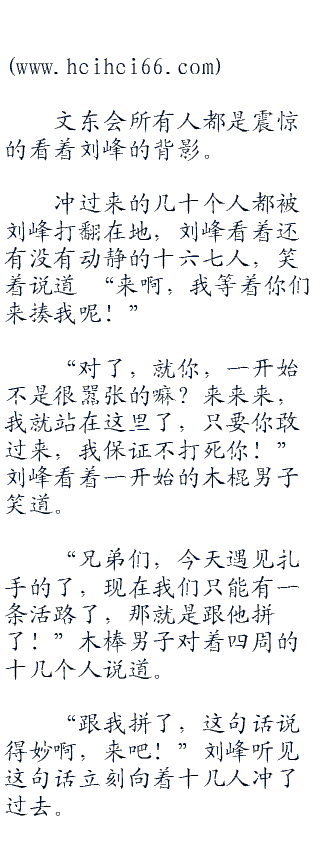 (www.hcihci66.com)
文东会所有人都是震惊
的看着刘峰的背影。
冲过来的几十个人都被
刘峰打翻在地，刘峰看着还
有没有动静的十六七人，笑
着说道 “来啊，我等着你们
来揍我呢！”
“对了，就你，一开始
不是很嚣张的嘛？来来来，
我就站在这里了，只要你敢
过来，我保证不打死你！”
刘峰看着一开始的木棍男子
笑道。
“兄弟们，今天遇见扎
手的了，现在我们只能有一
条活路了，那就是跟他拼
了！”木棒男子对着四周的
十几个人说道。
“跟我拼了，这句话说
得妙啊，来吧！”刘峰听见
这句话立刻向着十几人冲了
过去。